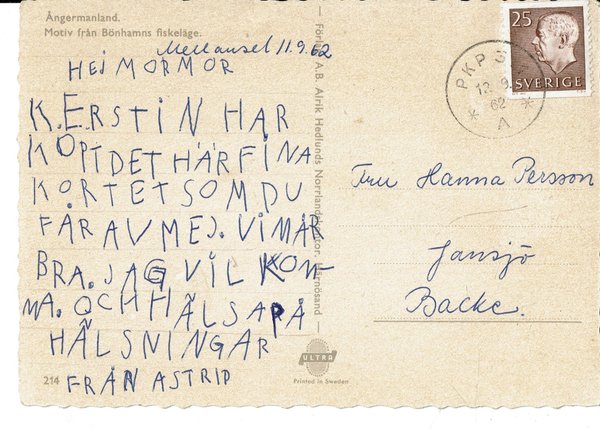 Ångermanland.
Motiv från Bönhamns fiskeläge.
Mellansel 11.9.62
HEJ MORMOR
KERSTIN HAR
KÖPT DET HÄR FINA
KORTET SOM DU
FÅR AV MEJ. VI MÅR
BRA. JAG VIL KOM-
MA. OCH HÄLSA PÅ
HÄLSNINGAR
FRÅN ASTRID
214
Förlag A.B. Alrik Hedlunds Norrlandskontor. Härnösand
ULTRA
Printed in Sweden
25
SVERIGE
PKP
62
A
Fru Hanna Persson
Jansjö
Backe.